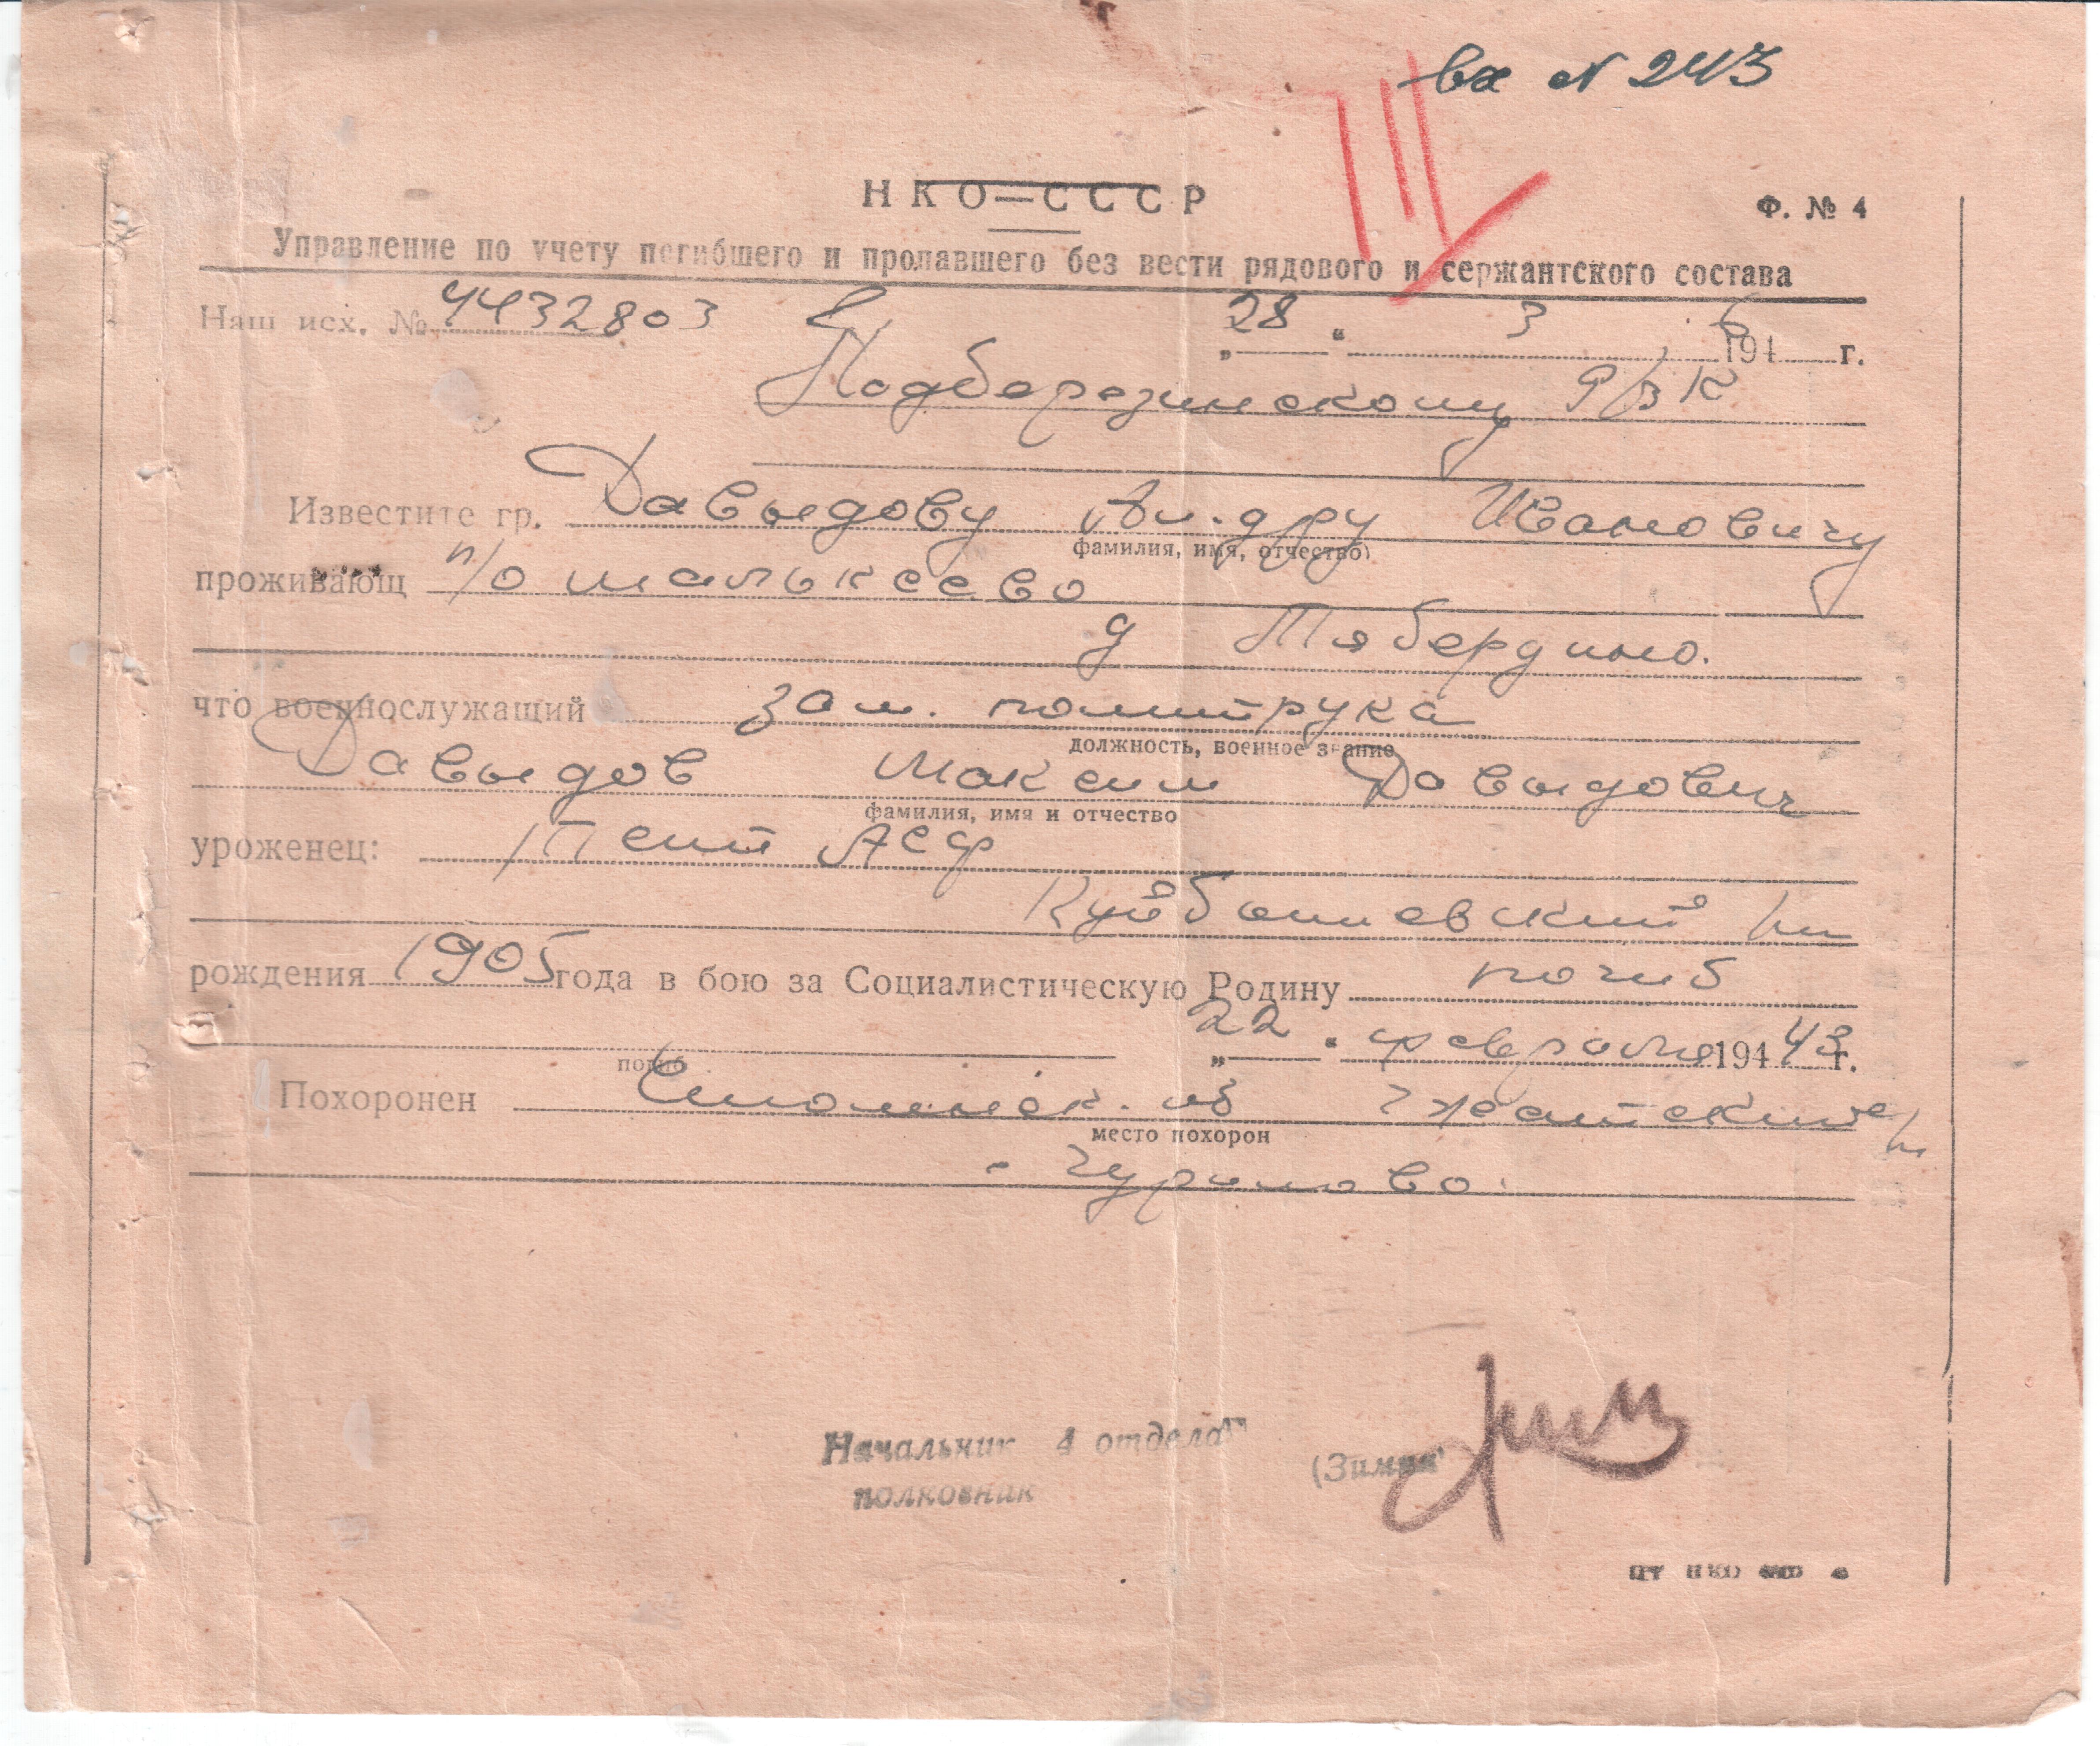 вх N 243
НКО—СССР
Ф. № 4
Управление по учету погибшего и пропавшего без вести рядового и сержантского состава
Наш исх. № 4432803 „28“ 3 1946 г.
Подберезинскому РВК
Известите гр. Давыдову Ан-дру Ивановичу
фамилия, имя, отчество)
проживающ п/о Малькеево
д Тябердино.
что военнослужащий зам. политрука
должность, военное звание
Давыдов Максим Давыдович
фамилия, имя и отчество
уроженец: Тат АССР
Куйбышевский
рождения 1905 года в бою за Социалистическую Родину погиб
„22“ февраля 194 43 г.
погиб
Похоронен Смоленск. об Гжатский
место похорон
- Чуриново.
Начальник 4 отдела
полковник
(Зимин